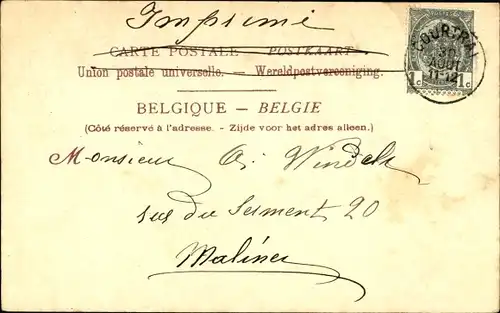 Imprimé
CARTE POSTALE POSTKAART
Union postale universelle. — Wereldpostvereeniging.
BELGIQUE — BELGIE
(Côté réservé à l'adresse. - Zijde voor het adres alleen.)
Monsieur
rue du Serment 20
Malines
COURTRAI
30
AOUT
11-12
1c 1c